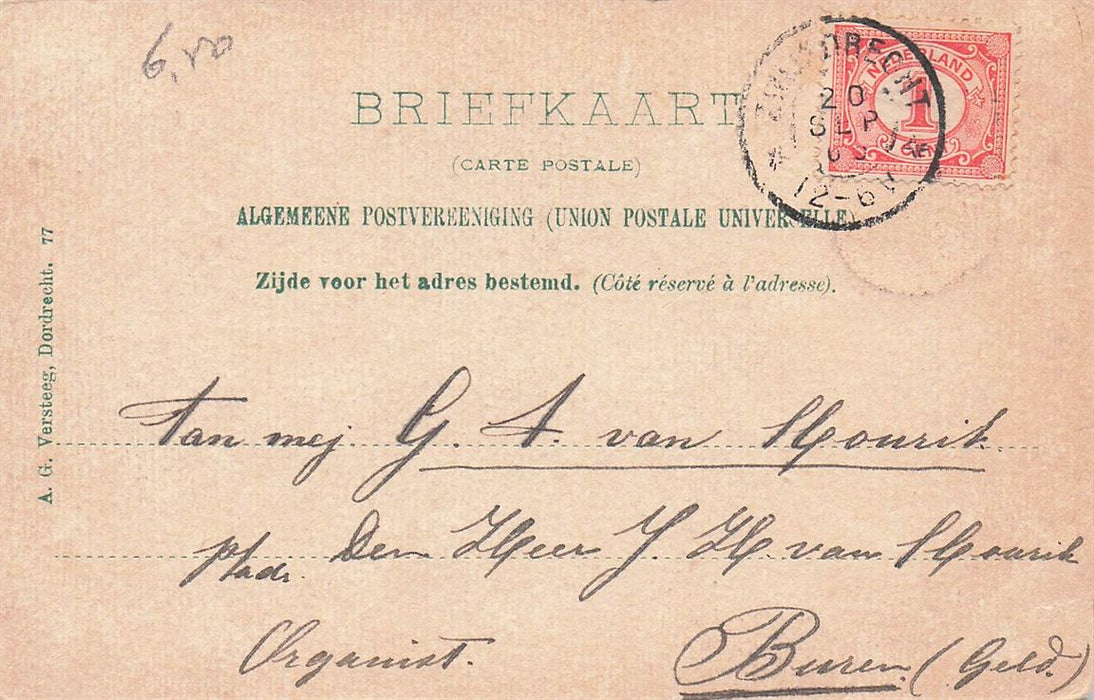 6,
BRIEFKAART
(CARTE POSTALE)
ALGEMEENE POSTVEREENIGING (UNION POSTALE UNIVERSELLE)
Zijde voor het adres bestemd. (Côté réservé à l'adresse).
A. G. Versteeg, Dordrecht. 77
NEDERLAND
1
20
SEP
12-6V
Aan mej. G. A. van Mourik
p/adr. Den Heer J H van Mourik
Organist. Buren. (Geld.)